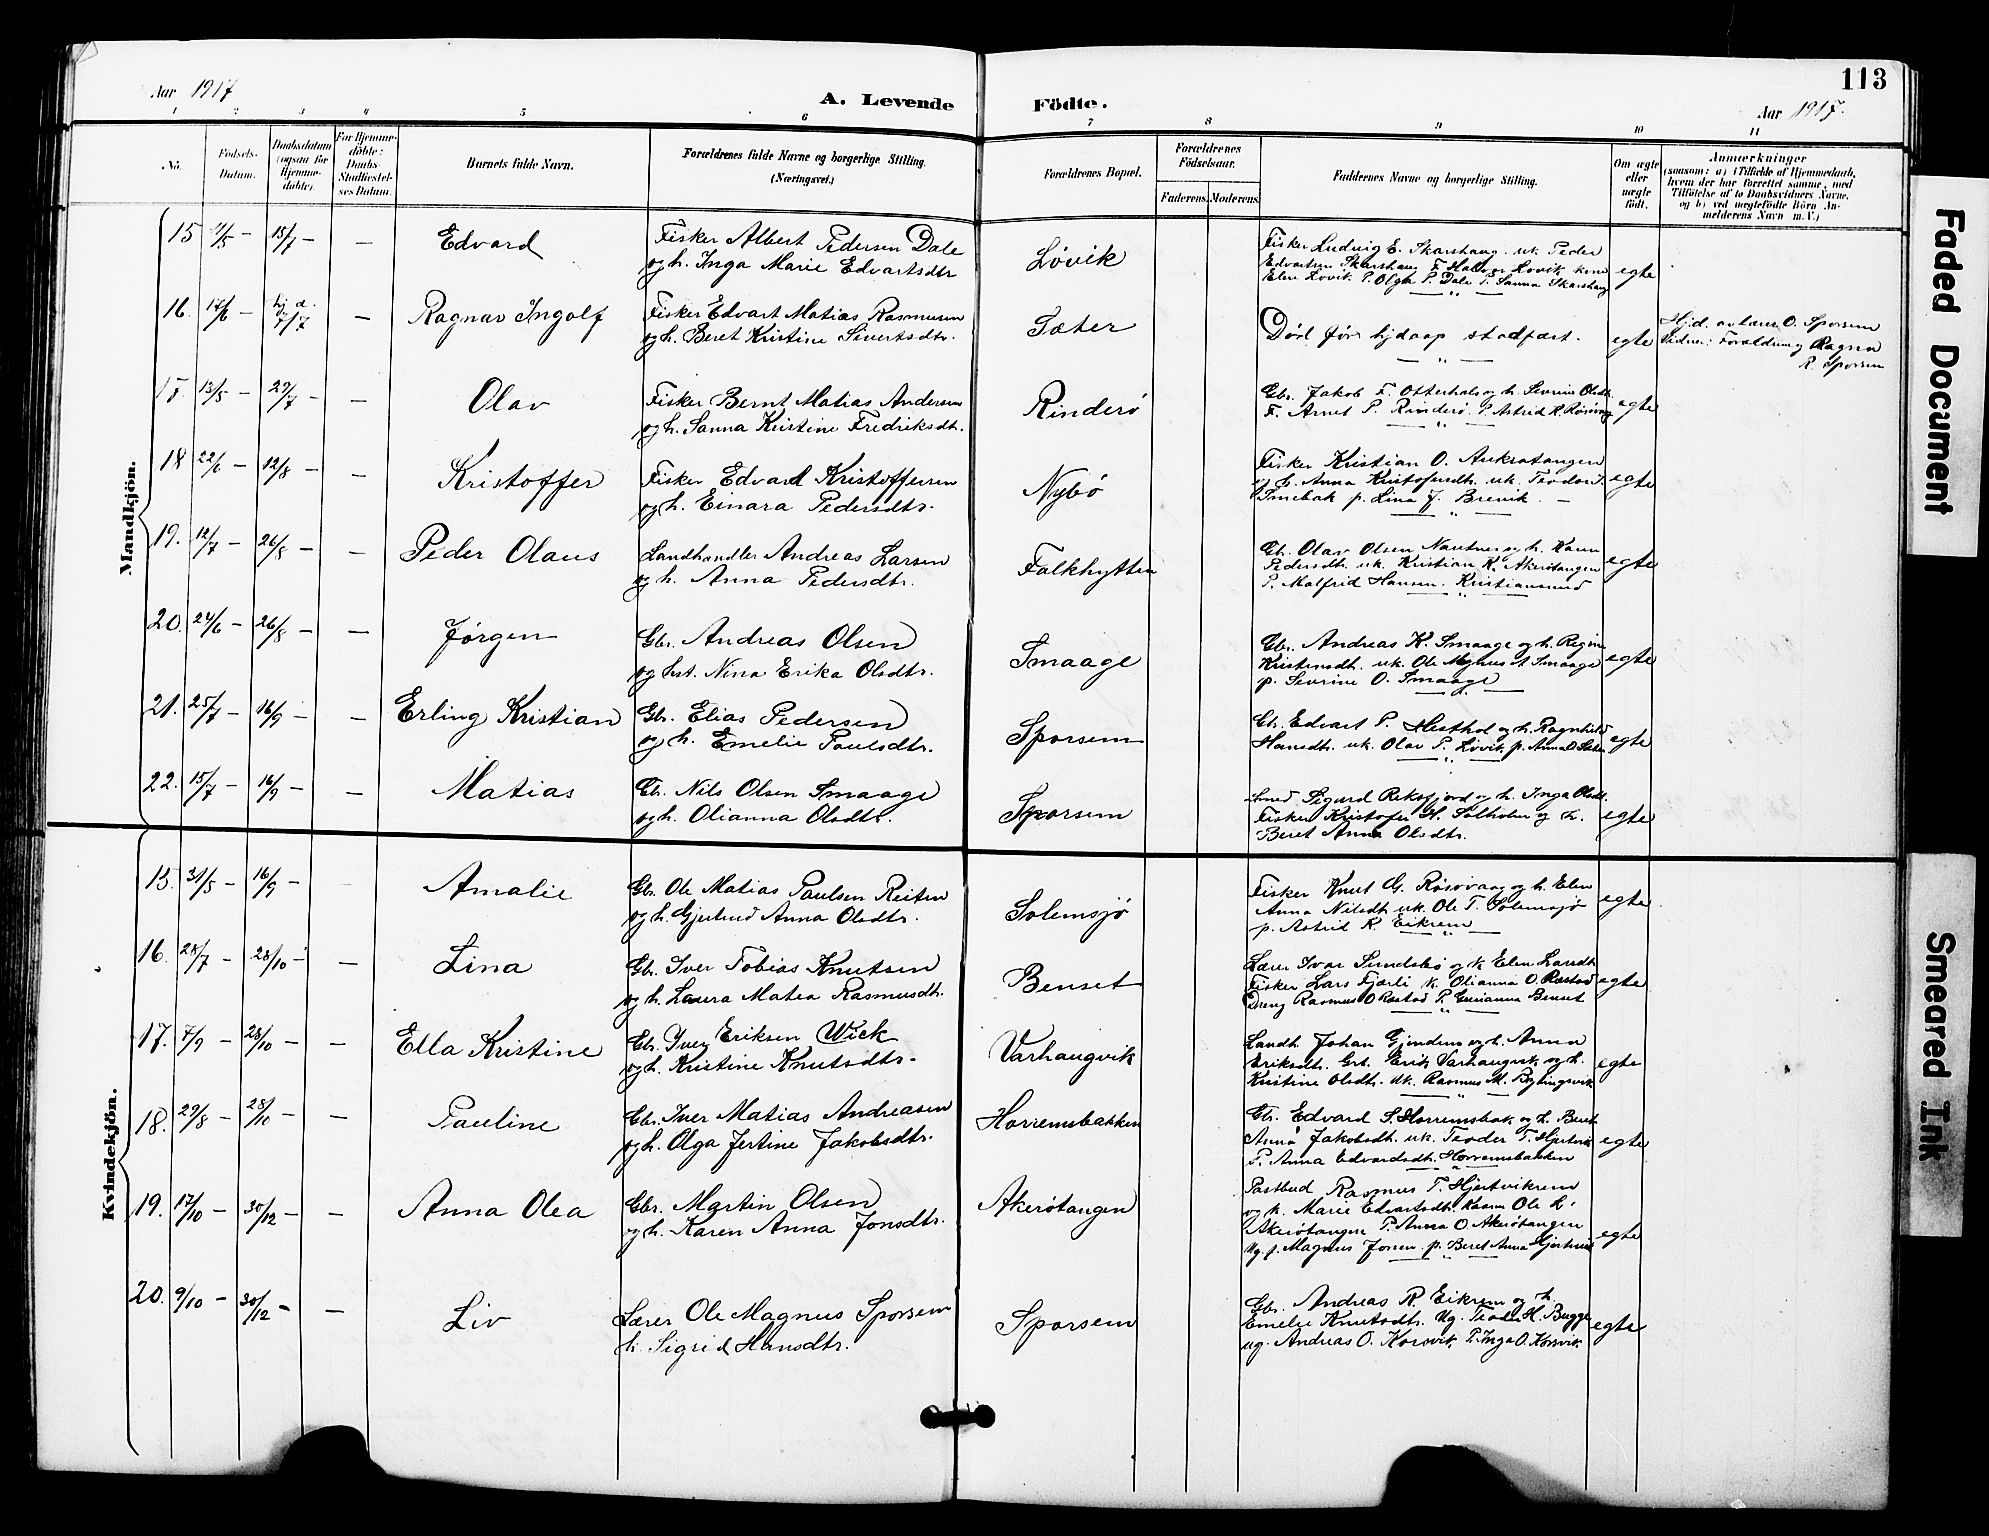 113
Aar 1917
A. Levende Födte.
Aar 1917.
1 2 3 4 5 6 7 8 9 10 11
No. Födsels-Datum. Daabsdatum (ogsaa for Hjemme-døbte). For Hjemme-døbte: Daabs-Stadfæstel-ses Datum. Barnets fulde Navn. Forældrenes fulde Navne og borgerlige Stilling. (Næringsvei.) Forældrenes Bopæl. Forældrenes Födselsaar. Faderens. Moderens. Faddernes Navne og borgerlige Stilling. Om ægte eller uægte født. Anmærkninger
(saasom: a) i Tilfælde af Hjemmedaab, hvem der har forrettet samme, med Tilføielse af to Daabsvidners Navne, og b) ved uægtefødte Börn Anmelderens Navn m. V.)
Mandkjön.
15 15/7 — — Edvard
Fisker Albert Pedersen Dale
og h. Inga Marie Edvartsdtr
Løvik
Fisker Ludvig E. Skarshaug. uk. Peder
Edvartsen Skarshaug F. Halvor Lovik kone
Elen Lovik P. Olga P. Dale P. Sanna Skarshaug
egte
16. 14/6 hj d. 7/7 — Ragnar Ingolf
Fisker Edvart Matias Rasmusen
og h. Beret Kristine Sivertsdtr.
Sæter
Død før hjdaap stadfæst.
egte
Hj.d. av Lærer O. Sporsem
Vidner: Forældrene og Ragna
R. Sporsem
17. 13/5 29/7 — — Olav
Fisker Bernt Matias Andersen
og h. Sanna Kristine Fredriksdtr.
Rinderö
Gbr. Jakob F. Otterhals og h. Sevrine Olsdtr
F. Arnet P. Rinderö P. Astrid K. Rösovaag
egte
18 22/6 — 12/8 — — Kristoffer
Fisker Edvard Kristoffersen
og h. Einara Pedersdtr.
Nybö
Fisker Kristian O. Aukratangen
og h. Anna Kristofersdtr. uk. Teodor J.
p. Lina J. Brevik. —
egte
19. 12/7 — 26/8 — — Peder Olaus
Landhandler Andreas Larsen
og h. Anna Pedersdtr.
Falkhytten
Gb. Olav Olsen Nautnes og h. Karen
Pedersdtr. uk. Kristian K. Akerötangen
P. Malfrid Hansen. Kristiansund
egte
20. 24/6 — 26/8 — — Jørgen
Gbr. Andreas Olsen
og hst. Nina Erika Olsdtr.
Smaage
Gbr. Andreas K. Smaage og h. Regine
Kristensdtr. uk. Ole Magnus A Smaage
p. Sevrine O. Smaage
egte
21. 25/7 — 16/9 — — Erling Kristian
Gbr. Elias Pedersen
og h. Emelie Paulsdtr.
Sporsem
Gb. Edvart P. Hesthol og h. Ragnhild
Hansdtr. uk. Olav P. Lövik p. Anna O.
egte
22. 15/7 — 16/9 — — Matias
Gb. Nils Olsen Smaage
og h. Olianna Olsdtr.
Sporsem
Sigurd Reksfjord og h. Inga Olsdtr.
Fisker Kristofer H. Solholm og h.
Beret Anna Olsdtr.
egte
Kvindekjön.
15. 31/5 — 16/9 — Amalie
Gbr. Ole Matias Paulsen Reiten
og h. Gjertrud Anna Olsdtr.
Solemsjö
Fisker Knut G. Rösovaag og h. Elen
Anna Nilsdtr. uk. Ole T. Solemsjö
p. Astrid R. Eikrem
egte
16. 28/7 — 28/10 — — Lina
Gb. Iver Tobias Knutsen
og h. Laura Matea Rasmusdtr.
Benset
Lærer Ivar Sundsbö og k Elen Larsdtr
Fisker Lars Fjærli k. Olianna O. Røstad
Dreng Rasmus O Røstad P. Gurianna Benset
egte
17. 7/9 — 28/10 — — Ella Kristine
Gb. Iver Eriksen Wick
og h. Kristine Knutsdtr.
Varhaugvik
Landh. Johan Gjendem og h. Anna
Eriksdtr. Gbr. Erik Varhaugvik og h.
Kristine Olsdtr. uk. Rasmus M. Bylingsvik
egte
18. 29/8 — 28/10 — — Pauline
Gbr. Iver Matias Andreasen
og h. Olga Jertine Jakobsdtr.
Horremsbakken
Gb. Edvard S. Horremsbak og h. Beret
Anna Jakobsdtr. uk. Teoder T. Hjertvik
P. Anna Edvardsdtr. Horremsbakken
egte
19. 17/10 — 30/12 — — Anna Olea
Gbr. Martin Olsen
og h. Karen Anna Jonsdtr.
Akerötangen
Postbud Rasmus T. Hjertvikrem
og k. Marie Edvartsdtr. Kaarn Ole L.
Akerötangen P. Anna O. Akerötangen
Ug. f. Magnus Jonsen p. Beret Anna Hjertvik
egte
20. 9/10 — 30/12 — — Liv
Lærer Ole Magnus Sporsem
h. Sigrid Hansdtr.
Sporsem
Gbr. Andreas R. Eikrem og h.
Emelie Knutsdtr. Ug. Teodor H. Bugge
ug. Andreas O. Korsvik. P. Inga O. Korsvik.
egte
Faded Document
Smeared Ink